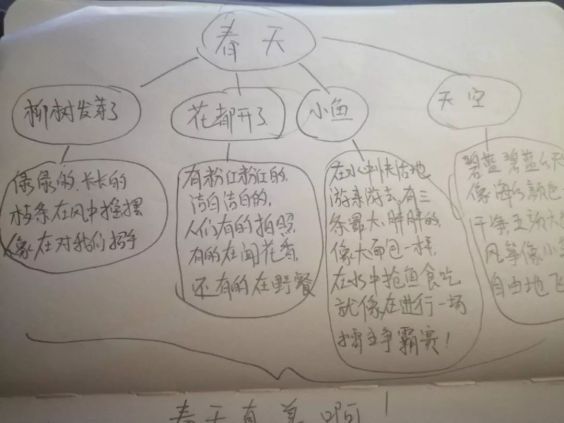 春 天
柳树发芽了
花都开了
小鱼
天空
绿绿的、长长的
枝条在风中摇摆
像在对我们招手
有粉红粉红的,
洁白洁白的,
人们有的拍照,
有的在闻花香,
还有的在野餐
在水中快活地
游来游去,有三
条最大,胖胖的,
像大面包一样,
在水中抢鱼食吃
就像在进行一场
擂主争霸赛!
碧蓝碧蓝
像海的颜色
风筝像小
自由地飞
春天真美啊!